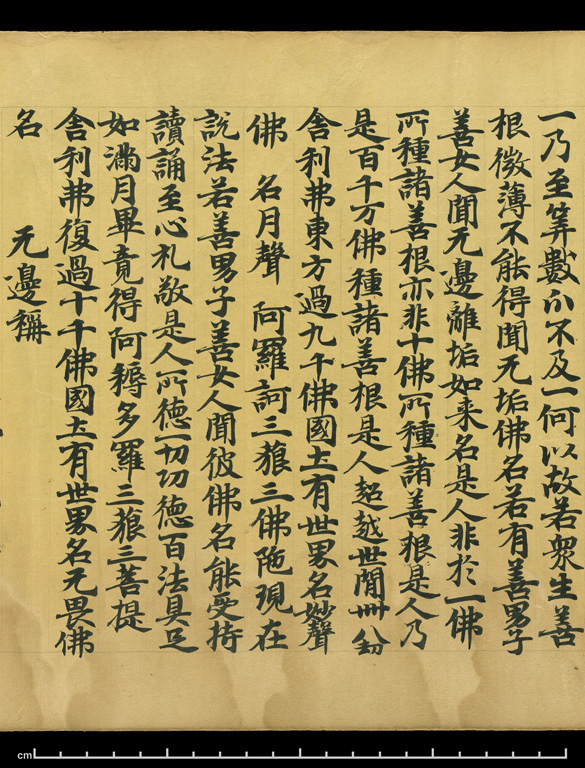 一乃至筭數亦不及一何以故若衆生善
根微薄不能得聞无垢佛名若有善男子
善女人聞无邊離垢如来名是人非於一佛
所種諸善根亦非十佛所種諸善根是人乃
是百千万佛種諸善根是人超越世閒卌八劫
舍利弗東方過九千佛國土有世界名妙聲
佛 名月聲 阿羅訶三狼三佛陁現在
說法若善男子善女人聞彼佛名能受持
讀誦至心礼敬是人所德一切切德百法具足
如滿月畢竟得阿耨多羅三狼三菩提
舍利弗復過十千佛國土有世界名无畏佛
名 无邊稱
cm